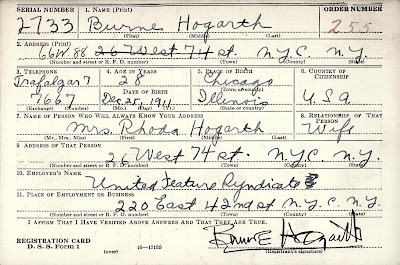 SERIAL NUMBER 1. NAME (Print) ORDER NUMBER
2733 Burne Hogarth 255
(First) (Middle) (Last)
2. ADDRESS (Print)
66 W. 88 26 West 74 st. N.Y.C. N.Y.
(Number and street or R. F. D. number) (Town) (County) (State)
3. TELEPHONE 4. AGE IN YEARS 5. PLACE OF BIRTH 6. COUNTRY OF CITIZENSHIP
Trafalgar 7 28 Chicago
(Town or county)
7667 DATE OF BIRTH Illinois U.S.A.
Dec. 25, 1911
(Exchange) (Number) (Mo.) (Day) (Yr.) (State or country)
7. NAME OF PERSON WHO WILL ALWAYS KNOW YOUR ADDRESS 8. RELATIONSHIP OF THAT PERSON
Mrs. Rhoda Hogarth Wife
(Mr., Mrs., Miss) (First) (Middle) (Last)
9. ADDRESS OF THAT PERSON
26 West 74 st. N.Y.C. N.Y.
(Number and street or R. F. D. number) (Town) (County) (State)
10. EMPLOYER'S NAME
United Feature Syndicate
11. PLACE OF EMPLOYMENT OR BUSINESS
220 East 42nd st N.Y.C. N.Y.
(Number and street or R. F. D. number) (Town) (County) (State)
I AFFIRM THAT I HAVE VERIFIED ABOVE ANSWERS AND THAT THEY ARE TRUE.
REGISTRATION CARD
D. S. S. Form 1 16—17105 Burne Hogarth
(Registrant's signature)